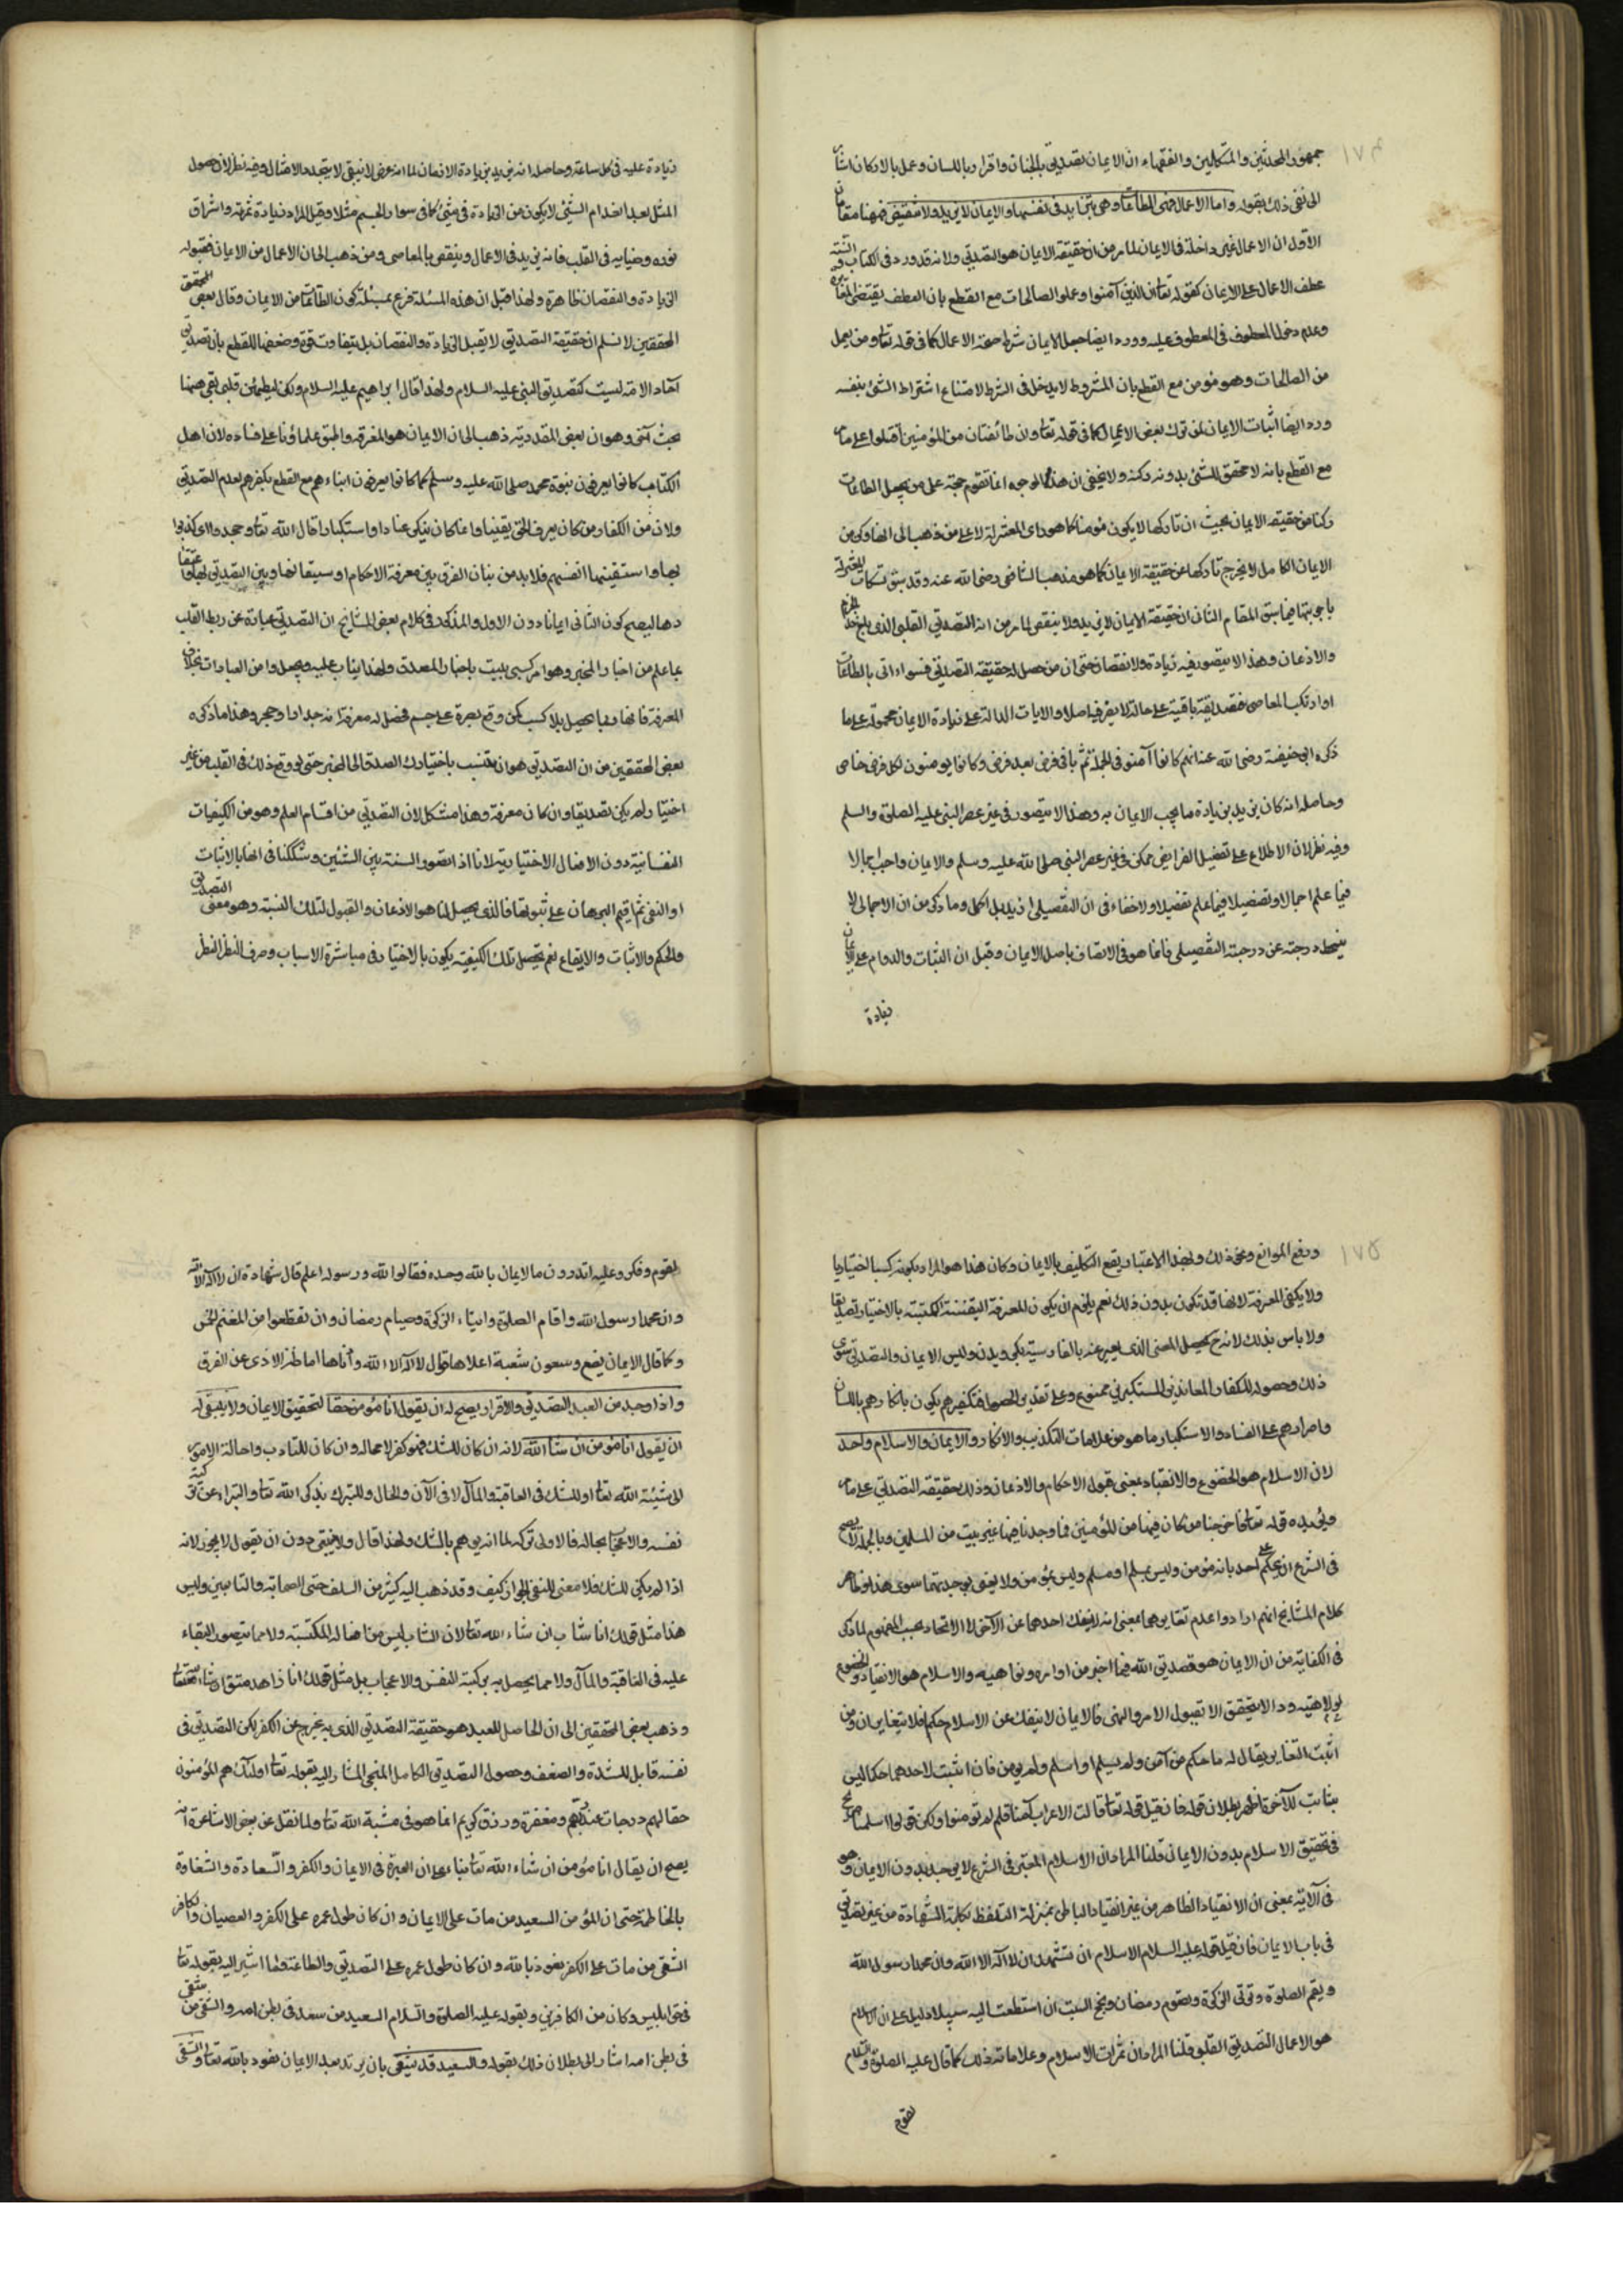 ١٧٤
جمهور المحدثين والمتكلمين والفقهاء ان الايمان تصديق بالجنان واقرار باللسان وعمل بالاركان اشار
الى نفى ذلك بقوله واما الاعمال فهى الطاعات وهى تتزايد فى نفسها والايمان لا يزيد ولا ينقص فهنا مقامان
الاول ان الاعمال غير داخلة فى الايمان لما مر من ان حقيقة الايمان هو التصديق ولانه قد ورد فى الكتاب والسنة
عطف الاعمال على الايمان كقوله تعا ان الذين آمنوا وعملوا الصالحات مع القطع بان العطف يقتضى المغايرة
وعدم دخول المعطوف فى المعطوف عليه وورد ايضا جعل الايمان شرط صحة الاعمال كما فى قوله تعا ومن يعمل
من الصالحات وهو مؤمن مع القطع بان المشروط لا يدخل فى الشرط لامتناع اشتراط الشئ بنفسه
وورد ايضا اثبات الايمان لمن ترك بعض الاعمال كما فى قوله تعا وان طائفتان من المؤمنين اقتتلوا على ما مر
مع القطع بانه لا تحقق للشئ بدون ركنه ولا يخفى ان هذه الوجوه انما تقوم حجة على من يجعل الطاعات
ركنا من حقيقة الايمان بحيث ان تاركها لا يكون مؤمنا كما هو راى المعتزلة لا على من ذهب الى انها ركن من
الايمان الكامل لا يخرج تاركها عن حقيقة الايمان كما هو مذهب الشافعى رضى الله عنه وقد سبق تمسكات المعتزلة
باجوبتها فيما سبق المقام الثانى ان حقيقة الايمان لا يزيد ولا ينقص لما مر من انه التصديق القلبى الذى بلغ حد الجزم
والاذعان وهذا لا يتصور فيه زيادة ولا نقصان حتى ان من حصل له حقيقة التصديق فسواء اتى بالطاعات
او ارتكب المعاصى فتصديقه باقية على حاله لا تغير فيه اصلا والايات الدالة على زيادة الايمان محمولة على ما
ذكره ابى حنيفة رضى الله عنه انهم كانوا آمنوا فى الجملة ثم ياتى فرض بعد فرض وكانوا يومنون لكل فرض خاص
وحاصله انه كان يزيد بزيادة ما يجب الايمان به وهذا لا يتصور فى غير عصر النبى عليه الصلوة والسلم
وفيه نظر لان الاطلاع على تفصيل الفرايض ممكن فى غير عصر النبى صلى الله عليه وسلم والايمان واجب اجمالا
فيما علم اجمالا وتفصيلا فيما علم تفصيلا ولا خفاء فى ان التفصيلى ازيد بل اكمل وما ذكر من ان الاجمالى لا
ينحط درجته عن درجة التفصيلى فانما هو فى الاتصاف باصل الايمان وقيل ان الثبات والدوام على الايمان
زيادة
زيادة عليه فى كل ساعة وحاصله انه يزيد بزيادة الازمان لما انه عرض لا يبقى الا بتجدد الامثال وفيه نظر لان حصول
المثل بعد انعدام الشئ لا يكون من الزيادة فى شئ كما فى سواد الجسم مثلا وقيل المراد زيادة ثمرته واشراق
نوره وضيائه فى القلب فانه يزيد فى الاعمال وينقص بالمعاصى ومن ذهب الى ان الاعمال من الايمان فقبوله
الزيادة والنقصان ظاهرة ولهذا قيل ان هذه المسئلة فرع بمسئلة كون الطاعات من الايمان وقال بعض
المحققين لا نسلم ان حقيقة التصديق لا يقبل الزيادة والنقصان بل يتفاوت قوة وضعفا للقطع بان تصديق
آحاد الامة ليست كتصديق النبى عليه السلام ولهذا قال ابراهيم عليه السلام ولكن ليطمئن قلبى بقى ههنا
بحث آخر وهو ان بعض القدرية ذهب الى ان الايمان هو المعرفة واطبق علماؤنا على فساده لان اهل
الكتاب كانوا يعرفون نبوة محمد صلى الله عليه وسلم كما كانوا يعرفون ابناءهم مع القطع بكفرهم لعدم التصديق
ولان من الكفار من كان يعرف الحق يقينا وانما كان ينكر عنادا واستكبارا قال الله تعا وجحدوا
بها واستيقنتها انفسهم فلا بد من بيان الفرق بين معرفة الاحكام واستيقانها وبين التصديق بها واعتقا
دها ليصح كون الثانى ايمانا دون الاول والمذكور فى كلام بعض المشايخ ان التصديق عبارة عن ربط القلب
بما علم من اخبار المخبر وهو امر كسبى يثبت باختيار المصدق ولهذا يثاب عليه ويجعل راس العبادات بخلاف
المعرفة فانها ربما يحصل بلا كسب كمن وقع بصره على جسم فحصل له معرفة انه جدار او حجر وهذا ما ذكره
بعض المحققين من ان التصديق هو ان تنسب باختيارك الصدق الى المخبر حتى لو وقع ذلك فى القلب من غير
اختيار لم يكن تصديقا وان كان معرفة وهذا مشكل لان التصديق من اقسام العلم وهو من الكيفيات
النفسانية دون الافعال الاختيارية لانا اذا تصورنا النسبة بين الشيئين وشككنا فى انها بالاثبات
او النفى ثم اقيم البرهان على ثبوتها فالذى يحصل لنا هو الاذعان والقبول لتلك النسبة وهو معنى التصديق
والحكم والاثبات والايقاع نعم تحصيل تلك الكيفية يكون بالاختيار فى مباشرة الاسباب وصرف النظر
١٧٥
ورفع الموانع ونحو ذلك وبهذا الاعتبار يقع التكليف بالايمان وكان هذا هو المراد بكونه كسبيا اختياريا
ولا يكفى المعرفة لانها قد تكون بدون ذلك نعم يلزم ان يكون المعرفة اليقينية المكتسبة بالاختيار تصديقا
ولا باس بذلك لانه ح يحصل المعنى الذى يعبر عنه بالفارسية بگرويدن وليس الايمان والتصديق سوى
ذلك وحصوله للكفار المعاندين المستكبرين ممنوع وعلى تقدير الحصول فتكفيرهم يكون بانكارهم باللسان
واصرارهم على العناد والاستكبار وما هو من علامات التكذيب والانكار والايمان والاسلام واحد
لان الاسلام هو الخضوع والانقياد بمعنى قبول الاحكام والاذعان وذلك حقيقة التصديق على ما مر
ويؤيده قوله تعا فاخرجنا من كان فيها من المؤمنين فما وجدنا فيها غير بيت من المسلمين وبالجملة لا يصح
فى الشرع ان يحكم على احد بانه مؤمن وليس بمسلم او مسلم وليس بمؤمن ولا يعنى بوحدتهما سوى هذا وظاهر
كلام المشايخ انهم ارادوا عدم تغايرهما بمعنى انه لا ينفك احدهما عن الآخر لا الاتحاد بحسب المفهوم لما ذكر
فى الكفاية من ان الايمان هو تصديق الله فيما اخبر من اوامره ونواهيه والاسلام هو الانقياد والخضوع
لالوهيته وذا لا يتحقق الا بقبول الامر والنهى فالايمان لا ينفك عن الاسلام حكما فلا يتغايران ومن
اثبت التغاير يقال له ما حكم من آمن ولم يسلم او اسلم ولم يومن فان اثبت لاحدهما حكما ليس
بثابت للآخر فظهر بطلان قوله فان قيل قوله تعا قالت الاعراب آمنا قل لم تؤمنوا ولكن قولوا اسلمنا صريح
فى تحقيق الاسلام بدون الايمان قلنا المراد ان الاسلام المعتبر فى الشرع لا يوجد بدون الايمان وهو
فى الآية بمعنى ان الانقياد الظاهر من غير انقياد الباطن بمنزلة التلفظ بكلمة الشهادة من غير تصديق
فى باب الايمان فان قيل قوله عليه السلام الاسلام ان تشهد ان لا اله الا الله وان محمدا رسول الله
ويقيم الصلوة وتوتى الزكوة وتصوم رمضان وتحج البيت ان استطعت اليه سبيلا دليل على ان الاسلام
هو الاعمال التصديق القلبى قلنا المراد ان ثمرات الاسلام وعلاماته ذلك كما قال عليه الصلوة والسلام
لقوم
لقوم وفدوا عليه اتدرون ما الايمان بالله وحده فقالوا الله ورسوله اعلم قال شهادة ان لا اله الا الله
وان محمدا رسول الله واقام الصلوة وايتاء الزكوة وصيام رمضان وان تعطوا من المغنم الخمس
وكما قال الايمان بضع وسبعون شعبة اعلاها قول لا اله الا الله وادناها اماطة الاذى عن الطرق
واذا وجد من العبد التصديق والاقرار يصح له ان يقول انا مؤمن حقا لتحقيق الايمان ولا ينبغى له
ان يقول انا مؤمن ان شاء الله لانه ان كان للشك فهو كفر لا محالة وان كان للتادب واحالة الامور
الى مشيئة الله تعا او للشك فى العاقبة والمآل لا فى الآن والحال وللتبرك بذكر الله تعا والتبراء عن تزكية
نفسه والاعجاب بحاله فالاولى تركه لما انه يوهم بالشك ولهذا قال ولا ينبغى دون ان يقول لا يجوز لانه
اذا لم يكن للشك فلا معنى لنفى الجواز كيف وقد ذهب اليه كثير من السلف حتى الصحابة والتابعين وليس
هذا مثل قولك انا شاب ان شاء الله تعا لان الشاب ليس من افعاله المكتسبة ولا مما يتصور البقاء
عليه فى العاقبة والمآل ولا مما يحصل به تزكية النفس والاعجاب بل مثل قولك انا زاهد متق ان شاء الله تعا
وذهب بعض المحققين الى ان الحاصل للعبد هو حقيقة التصديق الذى به يخرج عن الكفر لكن التصديق فى
نفسه قابل للشدة والضعف وحصول التصديق الكامل المنجى المشار اليه بقوله تعا اولئك هم المؤمنون
حقا لهم درجات عند ربهم ومغفرة ورزق كريم انما هو فى مشية الله تعا ولما نقل عن بعض الاشاعرة انه
يصح ان يقال انا مؤمن ان شاء الله تعا بناء على ان العبرة فى الايمان والكفر والسعادة والشقاوة
بالخاتمة حتى ان المؤمن السعيد من مات على الايمان وان كان طول عمره على الكفر والعصيان والكافر
الشقى من مات على الكفر نعوذ بالله وان كان طول عمره على التصديق والطاعة وما اشير اليه بقوله تعا
فى حق ابليس وكان من الكافرين وبقوله عليه الصلوة والسلام السعيد من سعد فى بطن امه والشقى من شقى
فى بطن امه اشار الى بطلان ذلك بقوله والسعيد قد يشقى بان يرتد بعد الايمان نعوذ بالله تعا والشقى